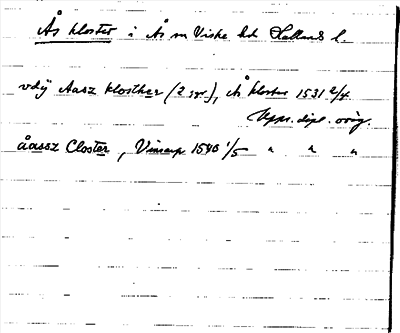 Ås kloster i Ås sn Viske hd Hallands l.
vdij Aasz klosther (2 ggr), Ås kloster 1531 2/4
Uppl. dipl. orig.
åassz Closter, 1540 1/5 " " "